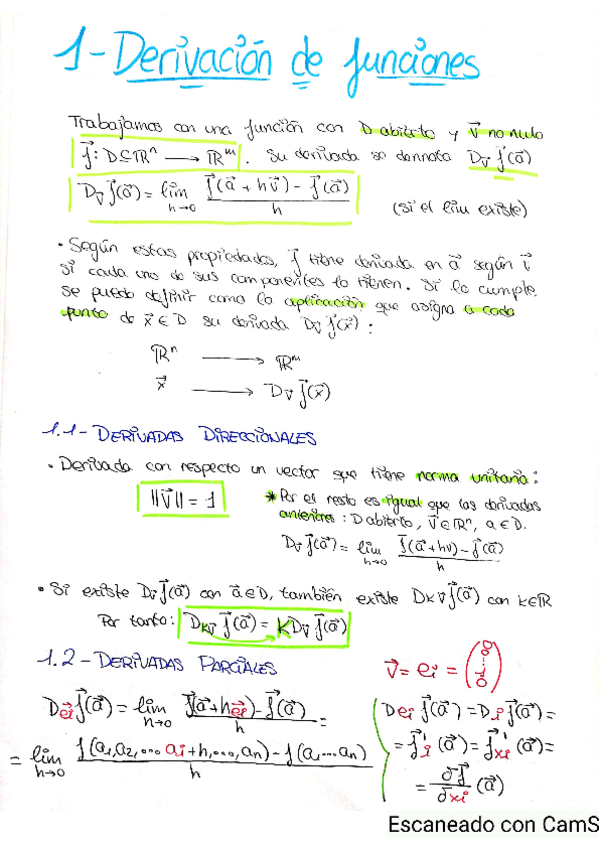 1-Derivación de funciones
Trabajamos con una función con D abierto y v⃗ no nulo
f⃗: D⊆ℝⁿ ⟶ ℝᵐ. Su derivada se denota D_v⃗ f⃗(a⃗)
D_v⃗ f⃗(a⃗) = lim_{h→0} (f⃗(a⃗ + hv⃗) - f⃗(a⃗)) / h (si el lim existe)
• Según estas propiedades, f⃗ tiene derivada en a⃗ según v⃗
si cada uno de sus componentes lo tienen. Si lo cumple
se puede definir como la aplicación que asigna a cada
punto de x⃗ ∈ D su derivada D_v⃗ f⃗(x⃗):
ℝⁿ ⟶ ℝᵐ
x⃗ ⟶ D_v⃗ f⃗(x⃗)
1.1- DERIVADAS DIRECCIONALES
• Derivada con respecto un vector que tiene norma unitaria:
||v⃗|| = 1
* Por el resto es igual que las derivadas
anteriores: D abierto, v⃗ ∈ ℝⁿ, a ∈ D.
D_v⃗ f⃗(a⃗) = lim_{h→0} (f⃗(a⃗+hv) - f⃗(a⃗)) / h
• Si existe D_v⃗ f⃗(a⃗) con a⃗ ∈ D, también existe D_kv⃗ f⃗(a⃗) con k∈ℝ
Por tanto: D_kv⃗ f⃗(a⃗) = K D_v⃗ f⃗(a⃗)
1.2- DERIVADAS PARCIALES
v⃗ = ei = (0 ⋮ 1 ⋮ 0)
D_e⃗i f⃗(a⃗) = lim_{h→0} (f⃗(a⃗+he⃗i) - f⃗(a⃗)) / h =
= lim_{h→0} (f(a₁,a₂,...ai+h,...,an) - f(a₁...an)) / h
D_ei f⃗(a⃗) = D_i f⃗(a⃗) =
= f⃗'_i (a⃗) = f⃗'_xi (a⃗) =
= ∂f⃗/∂xi (a⃗)
Escaneado con CamS